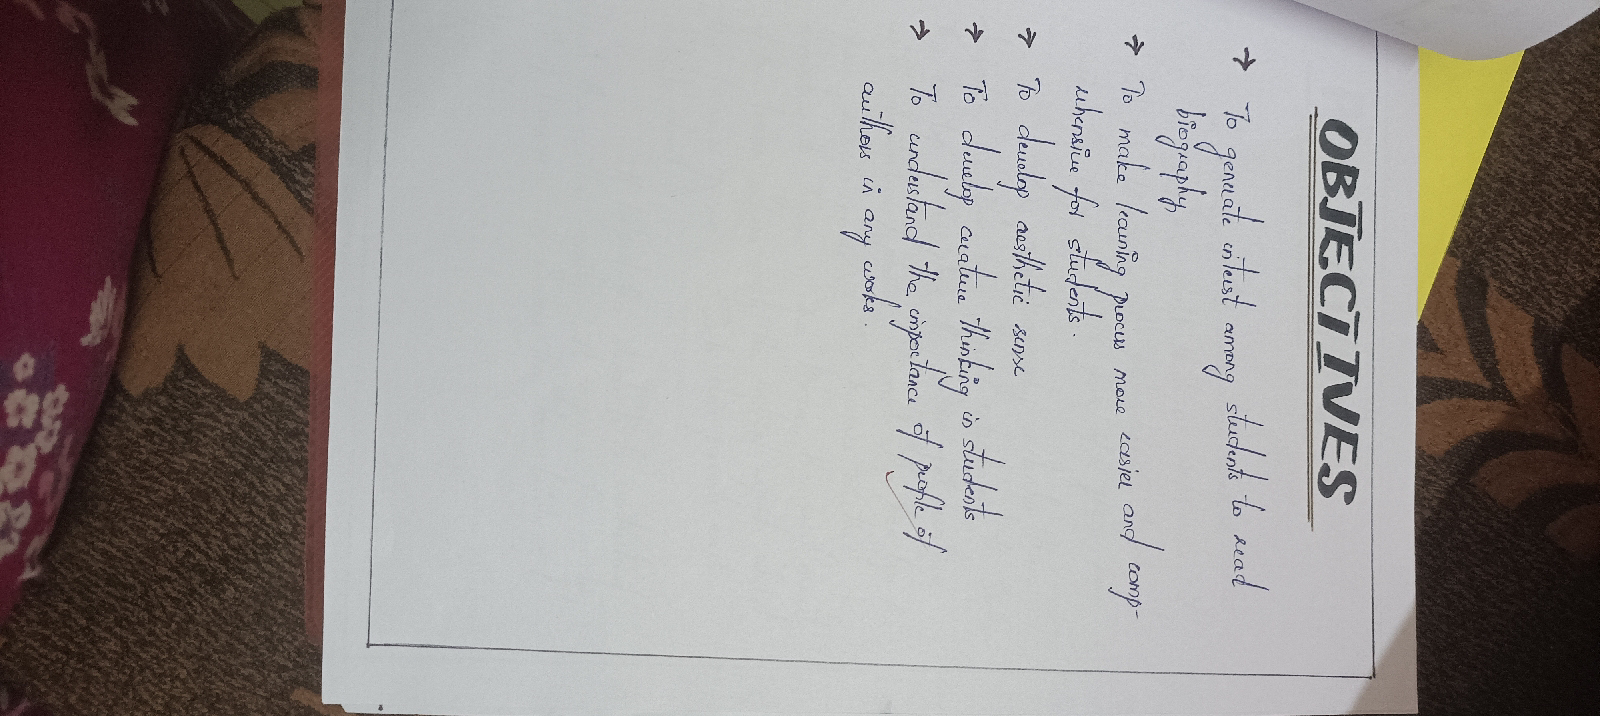 OBJECTIVES
→ To generate interest among students to read
biography
→ To make learning process more easier and comp-
rehensive for students.
→ To develop aesthetic sense
→ To develop creative thinking in students
→ To understand the importance of profile of
authors in any works.